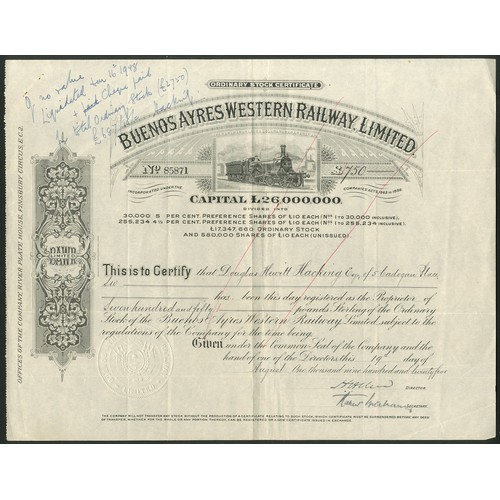 Of no value
Liquidated Jan 16th 1948
paid Cheque paid
for Ordinary Stock (£2750)
ORDINARY STOCK CERTIFICATE
BUENOS AYRES WESTERN RAILWAY, LIMITED.
No 85871
£750
INCORPORATED UNDER THE
COMPANIES ACTS, 1862 TO 1886
CAPITAL £26,000,000.
DIVIDED INTO
30,000 5 PER CENT. PREFERENCE SHARES OF £10 EACH (Nos 1 TO 30,000 INCLUSIVE).
255,234 4½ PER CENT. PREFERENCE SHARES OF £10 EACH (Nos 1 TO 255,234 INCLUSIVE).
£17,347,660. ORDINARY STOCK
AND 580,000 SHARES OF £10 EACH (UNISSUED)
OFFICES OF THE COMPANY, RIVER PLATE HOUSE, FINSBURY CIRCUS, E.C.2.
LIMITED
This is to Certify that Douglas Hewitt Hacking Esq of 5 Cadogan
has been this day registered as the Proprietor of
Seven hundred and fifty pounds Sterling of the Ordinary
Stock of the Buenos Ayres Western Railway Limited, subject to the
regulations of the Company for the time being.
Given under the Common Seal of the Company and the
hand of one of the Directors this 19th day of
August One thousand nine hundred and twenty five
DIRECTOR
SECRETARY
THE COMPANY WILL NOT TRANSFER ANY STOCK WITHOUT THE PRODUCTION OF A CERTIFICATE RELATING TO SUCH STOCK, WHICH CERTIFICATE MUST BE SURRENDERED BEFORE ANY DEED
OF TRANSFER, WHETHER FOR THE WHOLE OR ANY PORTION THEREOF, CAN BE REGISTERED OR A NEW CERTIFICATE ISSUED IN EXCHANGE.